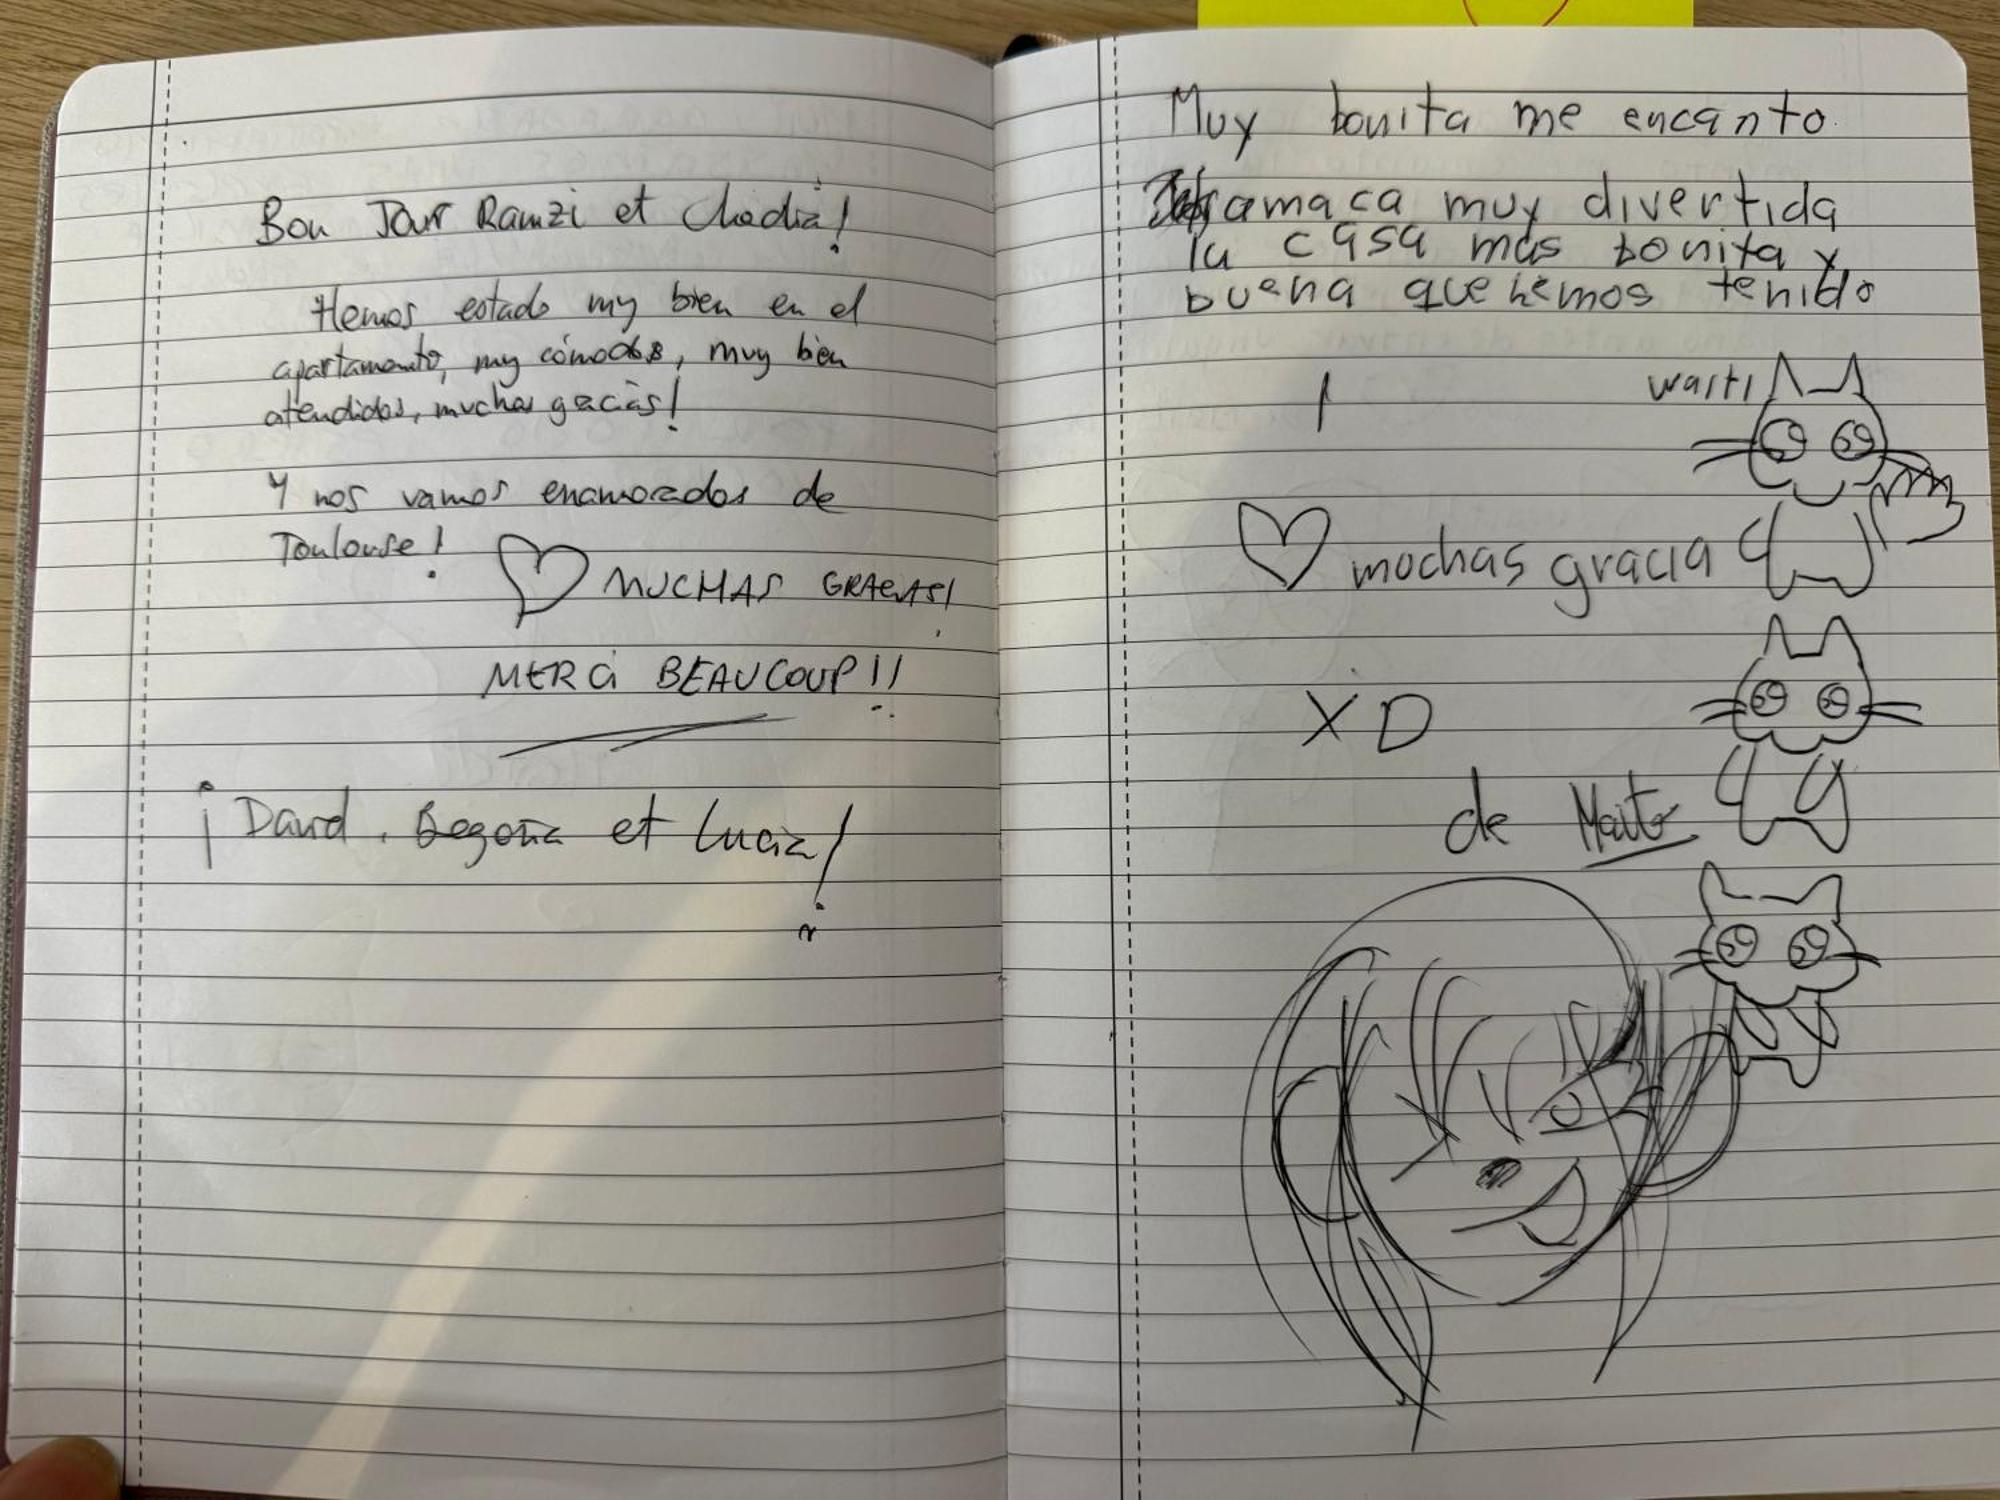 Bon Jour Ramzi et Chadia!
Hemos estado my bien en el
apartamento, my cómodos, muy bien
atendidos, muchas gacias!
Y nos vamos enamorados de
Toulouse!
MUCHAS GRACIAS!
MERCi BEAUCOUP!!
¡David, Begoña et Lucia!
Muy bonita me encanto
amaca muy divertida
la casa mas bonita y
buena que hemos tenido
mochas gracia
XD
de